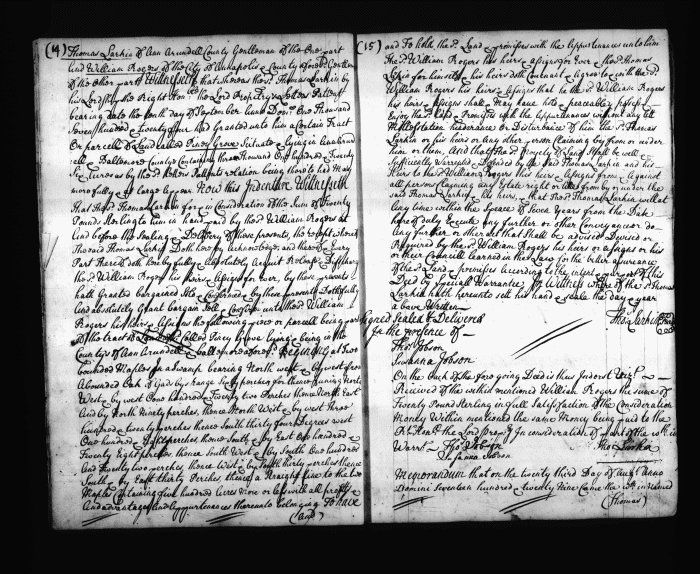 (14)
Thomas Larkin of Ann Arundell County Gentleman of the One part
And William Rogers of the City of Annapolis & County aforesd Gentlen
of the Other part Witnesseth that whereas the sd Thomas Larkin by
his Lordship the Right Honble the Lord Proprietrys Letters Pattent
bearing date the tenth day of September Anno Domi One Thousand
Seven hundred Twenty four had Granted unto him a Certain Tract
Or parcell of Land called Piney Grove Situate Lying &
Baltemore County Containing Thousand One hundred & Twenty
Six Acres as by the sd Letters Pattent relation being thereto had May
more fully & at large Appear. Now this Indenture Witnesseth
That the sd Thomas Larkin for & in Consideration of the Sum of Twenty
Pounds Sterling to him in hand paid by the sd William Rogers at
And before the Sealing & Delivery of these presents, the receipt whereof
The said Thomas Larkin Doth hereby Acknowledge and thereof & Every
Part thereof doth hereby fully & Absolutely Acquit Release & Discharge
the sd William Rogers his heirs & Assigns for Ever, by these presents
hath Granted bargained Sold & Confirmed & by these presents Doth fully
And absolutely Grant bargain Sell & Confirm unto the sd William
Rogers his heirs & Assigns the following piece or parcell being part
of the tract of Land called Piney Grove lying & being in the
County of Ann Arundell aforesd Beginning at Two
bounded Maples in a Swamp bearing North west & by west from
A bounded Oak of Gad by range Six perches & from thence running North
West & by west One hundred & Twenty two Perches thence North East
And by North Ninety perches, thence North West & by west Three
hundred & twenty perches thence South thirty four Degrees West
One hundred perches thence South & by East One hundred &
Twenty Eight perches thence South West & by South One hundred
And Twenty two perches, thence West & by South thirty perches thence
South & by East thirty Perches, thence a Straight line to the two
Maples Containing five hundred Acres More or less with all profits
And advantages And Appurtenances thereunto belonging To have
(and)
(15)
and To hold the sd Land & premises with the Appurtenances unto him
the sd William Rogers his heirs & Assigns for Ever & the sd Thomas
Larkin for himself & his heirs doth Covenant & agree to & with the sd
William Rogers his heirs & Assigns that he the sd William Rogers
his heirs & Assigns shall & may have hold & peaceably possess &
Enjoy the sd Land & Premises with the Appurtenances without any Let
Molestation hinderance or Disturbance of him the sd Thomas
Larkin or his heirs or Any other person Claiming by from or under
him or them, And that the
Sufficiently Warrant & Defend by the said Thomas Larkin and his
Heirs to the sd William Rogers his heirs & Assigns from & Against
all persons Claiming any Estate right or title from by or under the
said Thomas Larkin & his heirs, that the sd Thomas Larkin will at
Any time within the Space of Seven Years from the Date
hereof duly Execute any further or other Conveyance or do
Any further or other act that Shall be advised Devised or
Required by the sd William Rogers his heirs or assigns or his
or their Councill learned in the Law for the better assurance
of the sd Land & premises According to the intent & purport of this
Deed by Speciall Warrantee. In Witness whereof the sd Thomas
Larkin hath hereunto set his hand & seale the day & year
above Written
Signed Sealed & Delivered
Thos Larkin
In the presence of
Thos Jobson
Susanna Jobson
On the back of the foregoing Deed is thus Indorst Vizt
Received of the within mentioned William Rogers the sume of
Twenty Pound Sterling in full Satisfaction of the Consideration
Money Within mentioned the same Money being paid to the
Rt Honble the Lord Propry In consideration of part of the
Warrt Thos Jobson
Thos Larkin
Susanna Jobson
Memorandum that on the twenty third Day of Augt Anno
Domini Seventeen hundred & twenty Nine Came the within named
(Thomas)